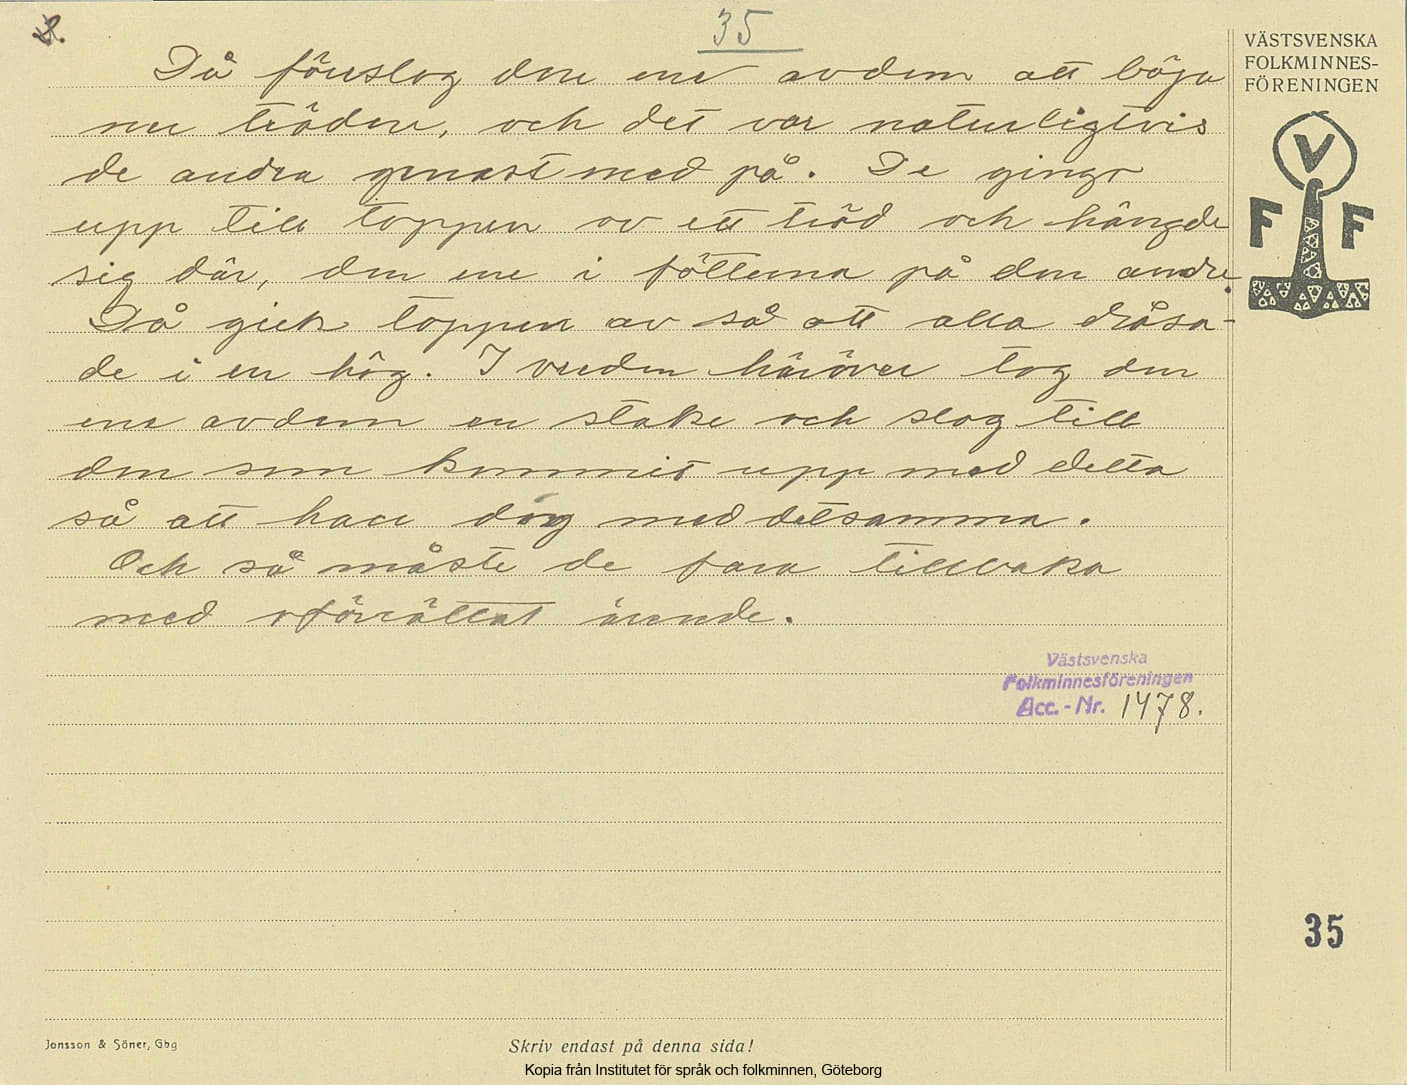 2.
35
Då föreslog den ene avdem att böja
ner träden, och det var naturligtvis
de andra genast med på. De gingo
upp till toppen av ett träd och hängde
sig där, den ene i fötterna på den andre.
Då gick toppen av så att alla dråsa-
de i en hög. I vreden häröver tog den
ene avdem en stake och slog till
den som kommit upp med detta
så att han dog med detsamma.
Och så måste de fara tillbaka
med oförrättat ärende.
VÄSTSVENSKA
FOLKMINNES-
FÖRENINGEN
V
F F
Västsvenska
Folkminnesföreningen
Acc. - Nr. 1478.
35
Jonsson & Söner, Gbg
Skriv endast på denna sida!
Kopia från Institutet för språk och folkminnen, Göteborg